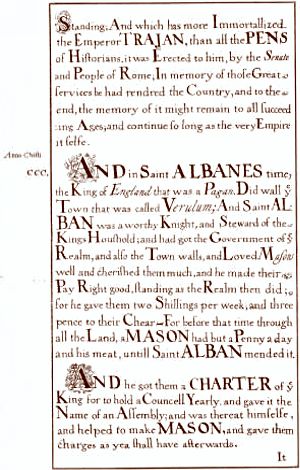 Standing; And which has more Immortallized
the Emperor TRAJAN, than all the PENS
of Historians, it was Erected to him, by the Senate
and People of Rome, In memory of those Great
services he had rendred the Country, and to the
end, the memory of it might remain to all succeed
ing Ages; and continue so long as the very Empire
it selfe.
Anno Christi
CCC.
AND in Saint ALBANES time;
the King of England that was a Pagan. Did wall yᵉ
Town that was called Verulum; And Saint AL-
BAN was a worthy Knight, and Steward of the
Kings Houshold; and had got the Government of yᵉ
Realm, and also the Town walls, and Loved Masons
well and cherished them much, and he made their
Pay Right good, standing as the Realm then did;
for he gave them two Shillings per week, and three
pence to their Chear—For before that time through
all the Land, a MASON had but a Penny a day
and his meat, untill Saint ALBAN mended it.
AND he got them a CHARTER of yᵉ
King for to hold a Councell Yearly, and gave it the
Name of an Assembly; and was thereat himselfe,
and helped to make MASON, and gave them
charges as yea shall have afterwards.
It